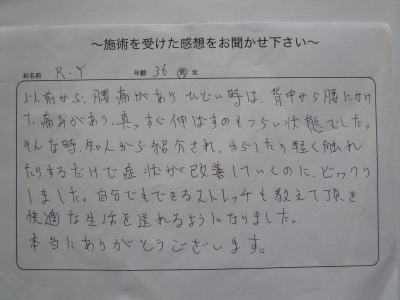 ～施術を受けた感想をお聞かせ下さい～
お名前 R.Y 年齢 36 男 女
以前から、腰痛があり、ひどい時は、背中から腰にかけ
て、痛みがあり、真っすぐ伸ばすのもつらい状態でした。
そんな時、知人から紹介され、ゆらしたり軽く触れ
たりするだけで症状が改善していくのに、ビックリ
しました。自分でもできるストレッチも教えて頂き
快適な生活を送れるようになりました。
本当にありがとうございます。